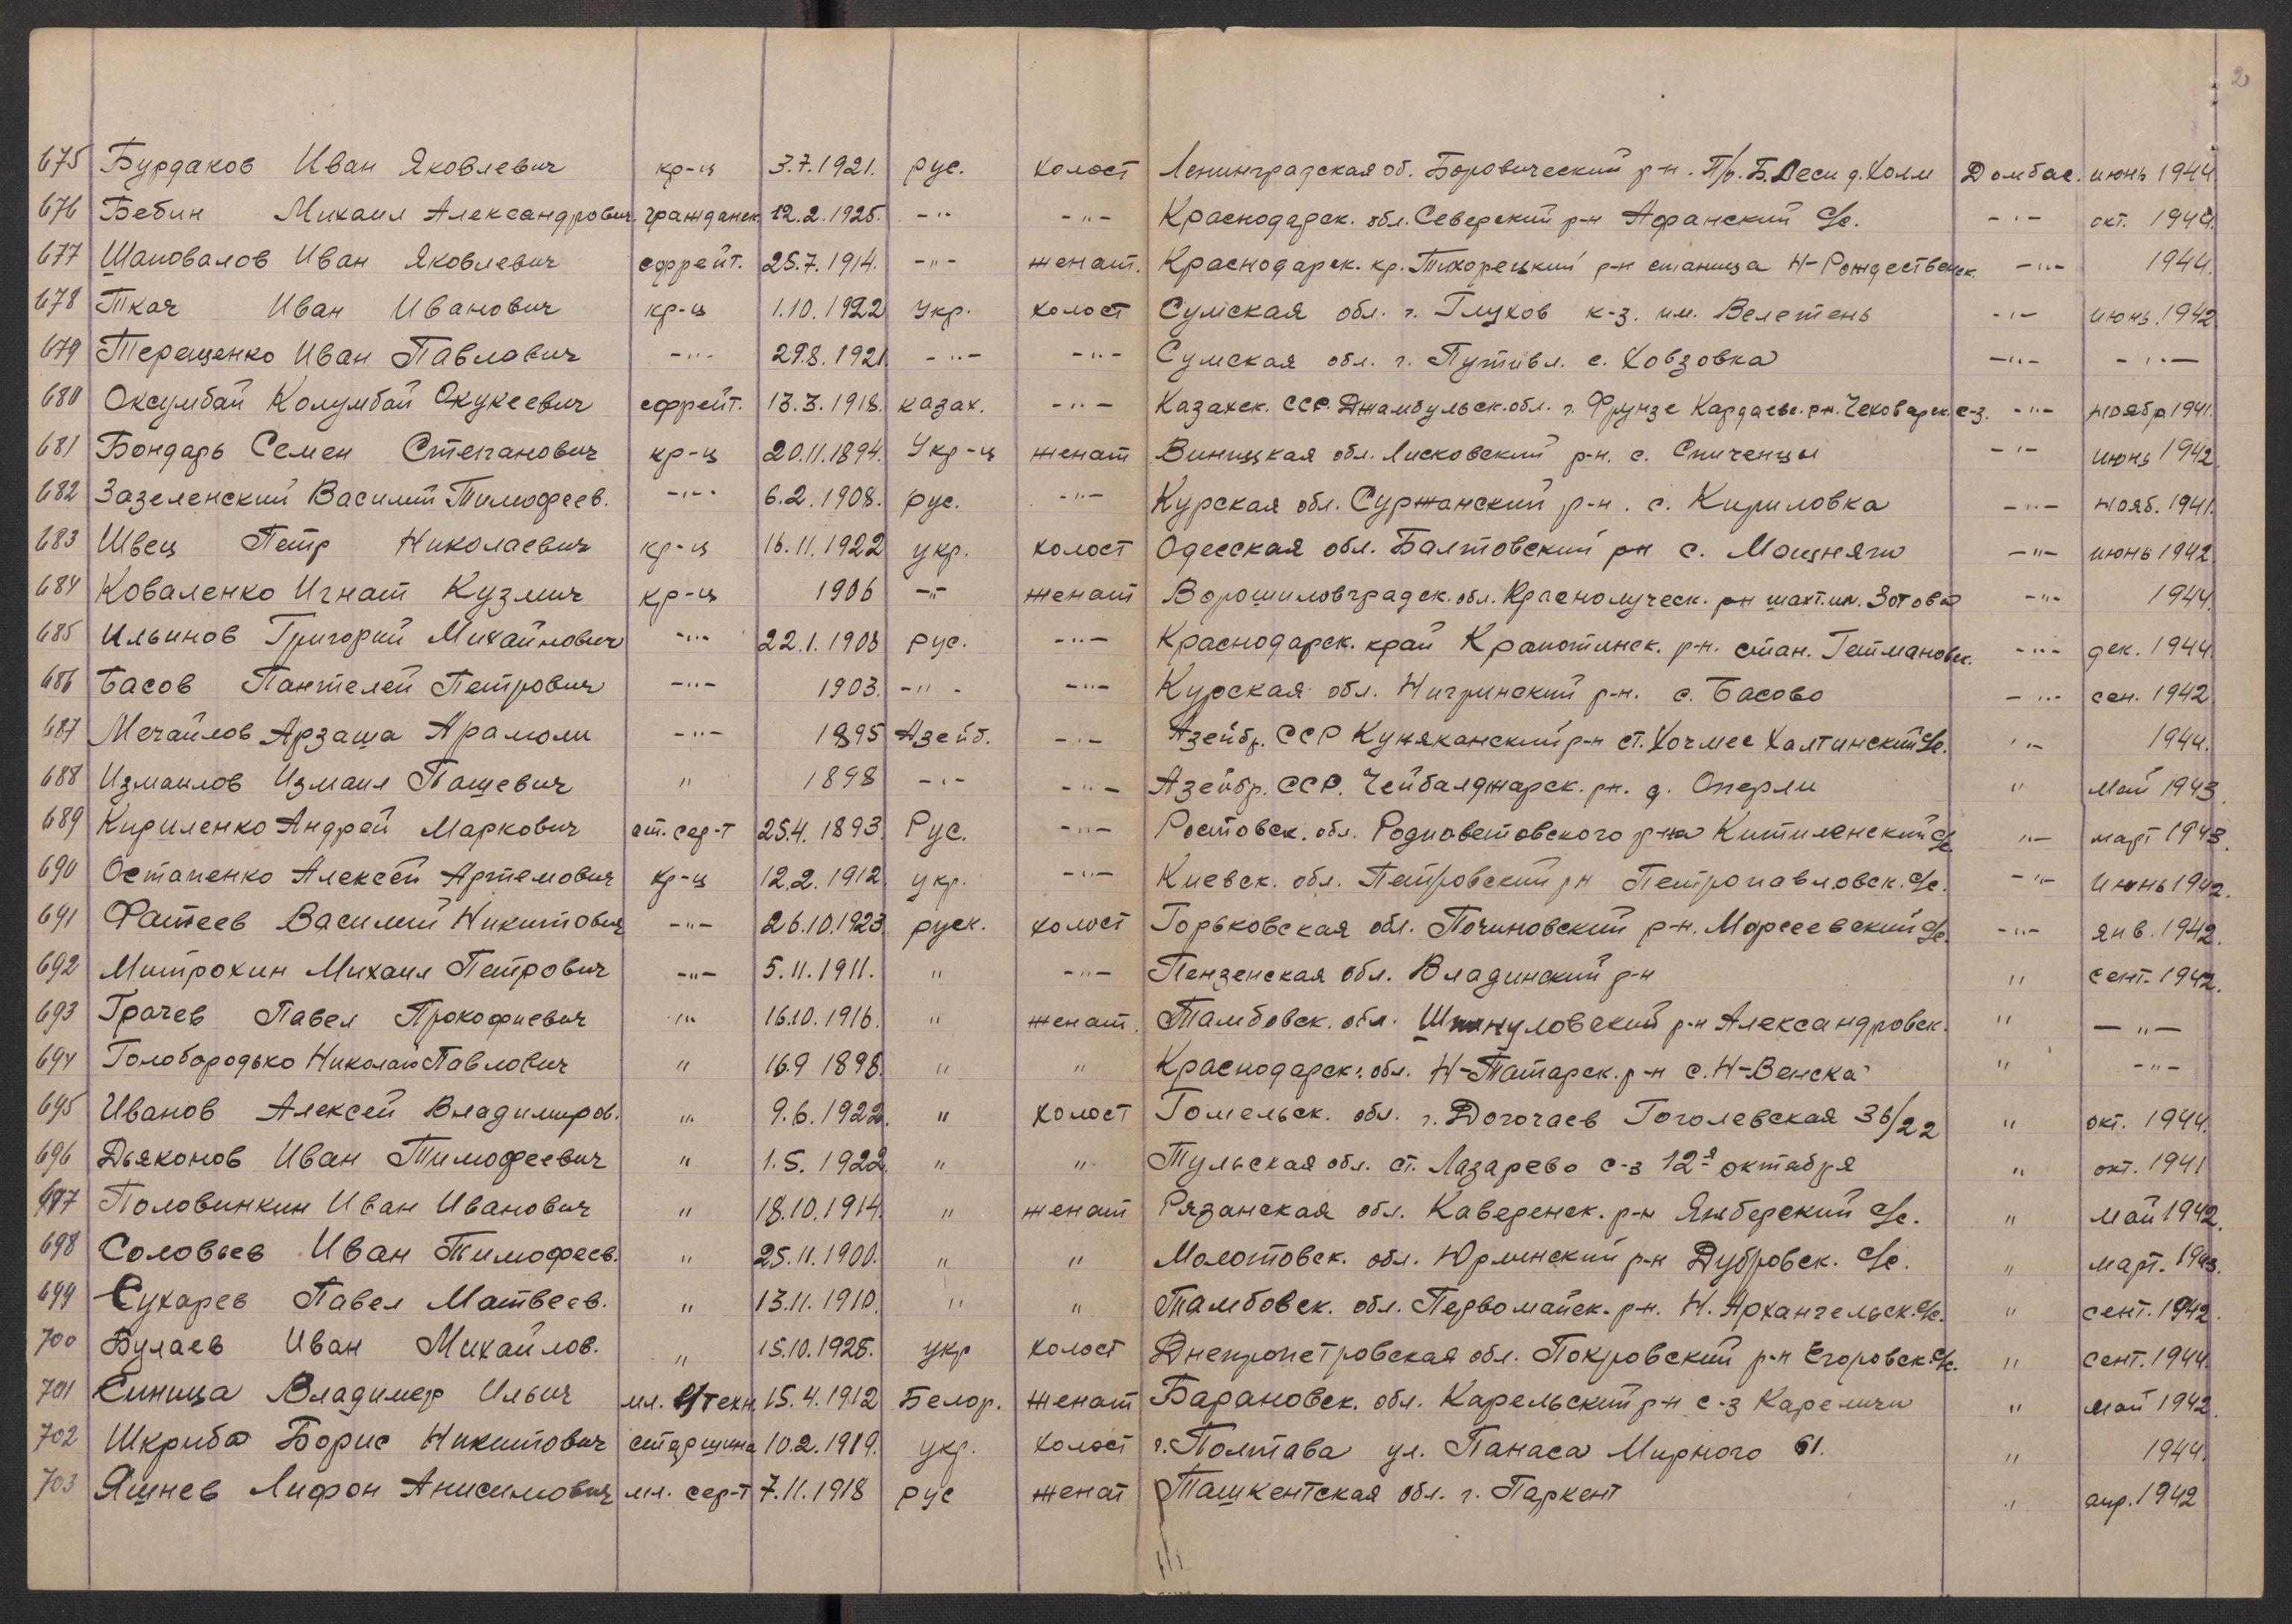 2
675 Бурдаков Иван Яковлевич кр-ц 3.7.1921. рус. холост Ленинградская об. Боровический р-н. П/о. Б.Леси д. Холм Домбас. июнь 1944
676 Бебин Михаил Александрович. гражданск. 12.2.1925. -"- -"- Краснодарск. обл. Северский р-н Афанский с/с. -"- окт. 1944.
677 Шаповалов Иван Яковлевич ефрейт. 25.7.1914. -"- женат. Краснодарск. кр. Тихорецкий р-н станица Н-Рождественск. -"- 1944.
678 Ткач Иван Иванович кр-ц 1.10.1922 Укр. холост Сумская обл. г. Глухов к-з. им. Велетень -"- июнь. 1942
679 Терещенко Иван Павлович -"- 29.8.1921. -"- -"- Сумская обл. г. Путивл. с. Ховзовка -"- -"-
680 Оксумбай Колумбай Окукеевич ефрейт. 13.3.1918. казах. -"- Казахск. ССР. Джамбульск. обл. г. Фрунзе Кардаевс. рн. Чеховарск. с-з. -"- ноябр 1941.
681 Бондарь Семен Степанович кр-ц 20.11.1894. Укр-ц женат Виницкая обл. Лисковский р-н. с. Спиченцы -"- июнь 1942.
682 Зазеленский Василий Тимофеев. -"- 6.2.1908. рус. -"- Курская обл. Суржанский р-н. с. Кириловка -"- нояб. 1941.
683 Швец Петр Николаевич кр-ц 16.11.1922 укр. холост Одесская обл. Балтовский рн с. Мощняги -"- июнь 1942.
684 Коваленко Игнат Кузмич кр-ц 1906 -"- женат Ворошиловградск. обл. Краснолуческ. рн шахт. им. Зотова -"- 1944.
685 Ильинов Григорий Михайлович -"- 22.1.1908 рус. -"- Краснодарск. край Крапотинск. р-н. стан. Гетмановск. -"- дек. 1944.
686 Басов Пантелей Петрович -"- 1903. -"- -"- Курская обл. Нигринский р-н. с. Басово -"- сен. 1942
687 Мечайлов Арзаша Арамоли -"- 1895 Азейб. -"- Азейбр. ССР Куняканский р-н ст. Хочмес Халтинский с/с. "- 1944.
688 Измаилов Измаил Пашевич " 1898 -"- -"- Азейбр. ССР. Чейбалджарск. рн. д. Оперли " май 1943.
689 Кириленко Андрей Маркович ст. сер-т 25.4.1893. Рус. -"- Ростовск. обл. Родиоветовского р-на Китиленский с/с "- март 1943.
690 Остапенко Алексей Артемович кр-ц 12.2.1912 укр. -"- Киевск. обл. Петровский рн Петропавловск. с/с. -"- июнь 1942.
691 Фатеев Василий Никитович -"- 26.10.1923 руск. холост Горьковская обл. Починовский р-н. Марсеевский с/с. -"- янв. 1942.
692 Митрохин Михаил Петрович -"- 5.11.1911. " -"- Пензенская обл. Владинский р-н " сент. 1942.
693 Грачев Павел Прокофиевич "- 16.10.1916. " женат. Тамбовск. обл. Шпикуловский р-н Александровск. " -"-
694 Голобородько Николай Павлович " 16.9 1898. " " Краснодарск. обл. Н-Татарск. р-н с. Н-Венска " -"-
695 Иванов Алексей Владимиров. " 9.6.1922. " холост Гомельск. обл. г. Догочаев Гоголевская 36/22 " окт. 1944.
696 Дьяконов Иван Тимофеевич " 1.5.1922 " " Тульская обл. ст. Лазарево с-з 12я октября " окт. 1941
697 Половинкин Иван Иванович " 18.10.1914. " женат Рязанская обл. Каверенск. р-н Ямберский с/с. " май 1942.
698 Соловьев Иван Тимофеев. " 25.11.1900. " " Молотовск. обл. Юрлинский р-н Дубровск. с/с. " март. 1943.
699 Сухарев Павел Матвеев. " 13.11.1910. " " Тамбовск. обл. Первомайск. р-н. Н. Архангельск. с/с. " сент. 1942.
700 Булаев Иван Михайлов. " 15.10.1925. укр холост Днепропетровская обл. Покровский р-н Егоровск. с/с. " сент. 1944.
701 Синица Владимер Ильич мл. в/техн. 15.4.1912 Белор. женат Барановск. обл. Карельский р-н с-з Кареличи " май 1942.
702 Шкриба Борис Никитович старшина 10.2.1919. укр. холост г. Полтава ул. Панаса Мирного 61. " 1944.
703 Яшнев Лифон Анисимович мл. сер-т 7.11.1918 рус женат Ташкентская обл. г. Паркент " апр. 1942